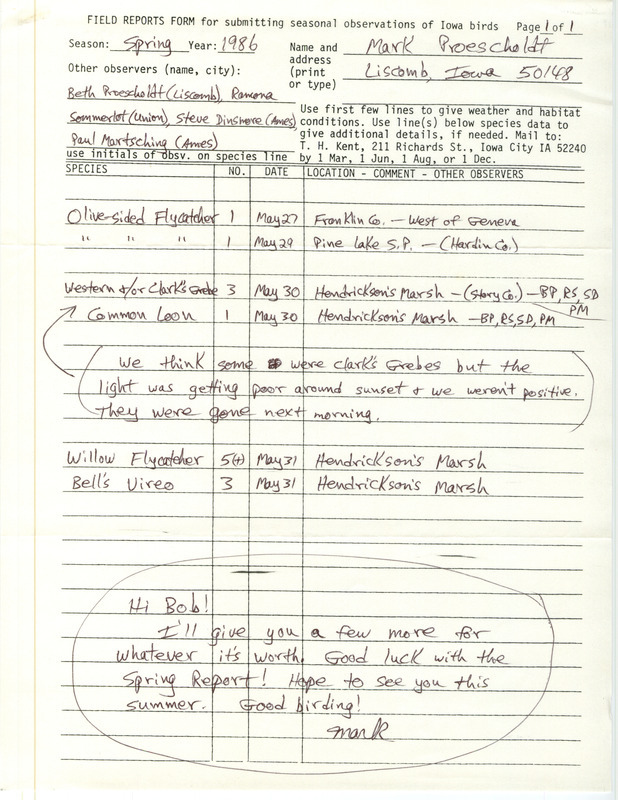 FIELD REPORTS FORM for submitting seasonal observations of Iowa birds Page 1 of 1
Season: Spring Year: 1986 Name and address (print or type) Mark Proescholdt
Liscomb, Iowa 50148
Other observers (name, city):
Beth Proescholdt (Liscomb), Ramona
Sommerlot (Union), Steve Dinsmore (Ames)
Paul Martsching (Ames)
use initials of obsv. on species line
Use first few lines to give weather and habitat
conditions. Use line(s) below species data to
give additional details, if needed. Mail to:
T. H. Kent, 211 Richards St., Iowa City IA 52240
by 1 Mar, 1 Jun, 1 Aug, or 1 Dec.
SPECIES NO. DATE LOCATION - COMMENT - OTHER OBSERVERS
Olive-sided Flycatcher 1 May 27 Franklin Co. - West of Geneva
" " " 1 May 29 Pine Lake S.P. - (Hardin Co.)
Western &/or Clark's Grebe 3 May 30 Hendrickson's Marsh - (Story Co.) - BP, RS, SD
PM
Common Loon 1 May 30 Hendrickson's Marsh - BP, RS, SD, PM
We think some were Clark's Grebes but the
light was getting poor around sunset & we weren't positive.
They were gone next morning.
Willow Flycatcher 5(+) May 31 Hendrickson's Marsh
Bell's Vireo 3 May 31 Hendrickson's Marsh
Hi Bob!
I'll give you a few more for
whatever it's worth. Good luck with the
Spring Report! Hope to see you this
summer. Good birding!
Mark